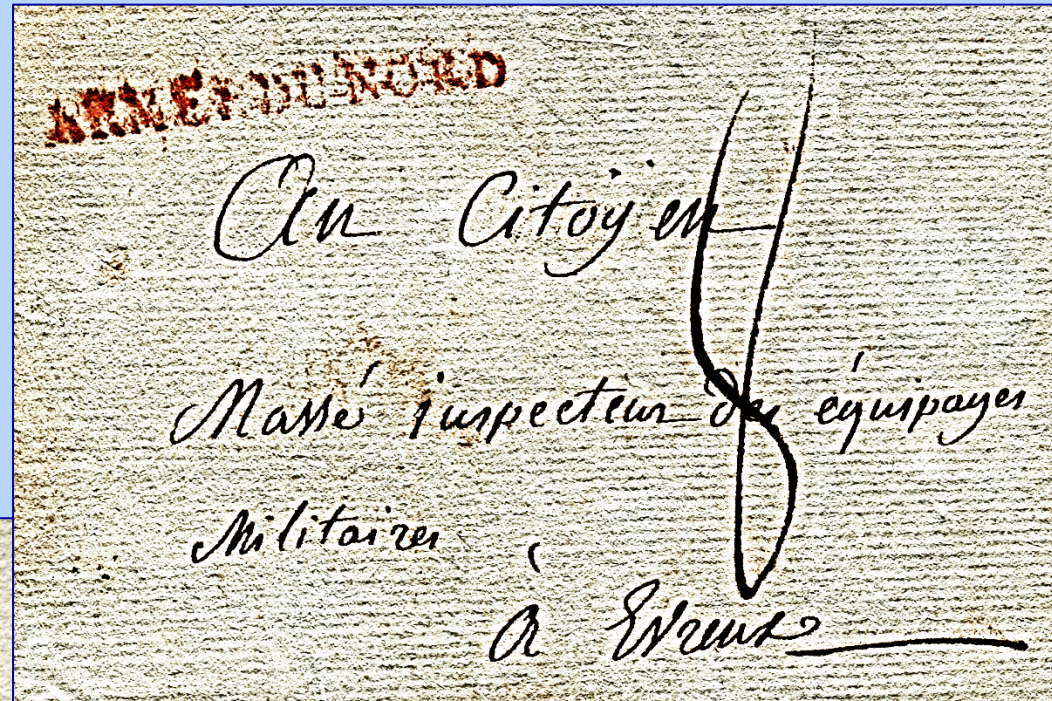 ARMÉE DU NORD
Au Citoyen
8
Massé inspecteur des équipages
Militaires
à Evreux